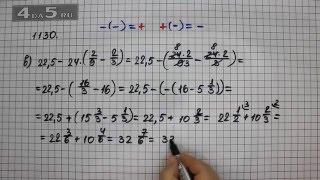 4DA5.RU
-(-) = + +(-) = -
1130.
б) 22,5 - 24·(2/9 - 2/3) = 22,5 -
= 22,5 - (16/3 - 16) = 22,5 - (-(16 - 5 1/3)) =
= 22,5 + (15 3/3 - 5 1/3) = 22,5 + 10 2/3 = 22 1/2 + 10 2/3 =
= 22 3/6 + 10 4/6 = 32 7/6 = 33